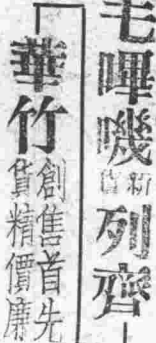 毛嗶嘰新貨列齊
華竹
創售首先
貨精價廉